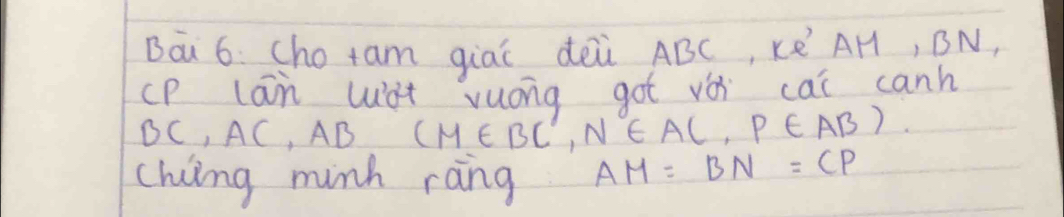 Bài 6: Cho tam giác đều ABC, kẻ AM, BN,
CP lần lượt vuông gót với các cạnh
BC, AC, AB (M ∈ BC, N ∈ AC, P ∈ AB).
Chứng minh rằng AM = BN = CP